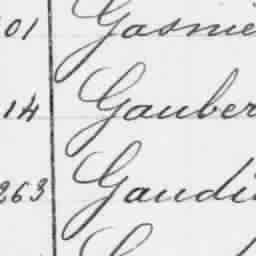 01 Gasnie
14 Gauber
263 Gaudi